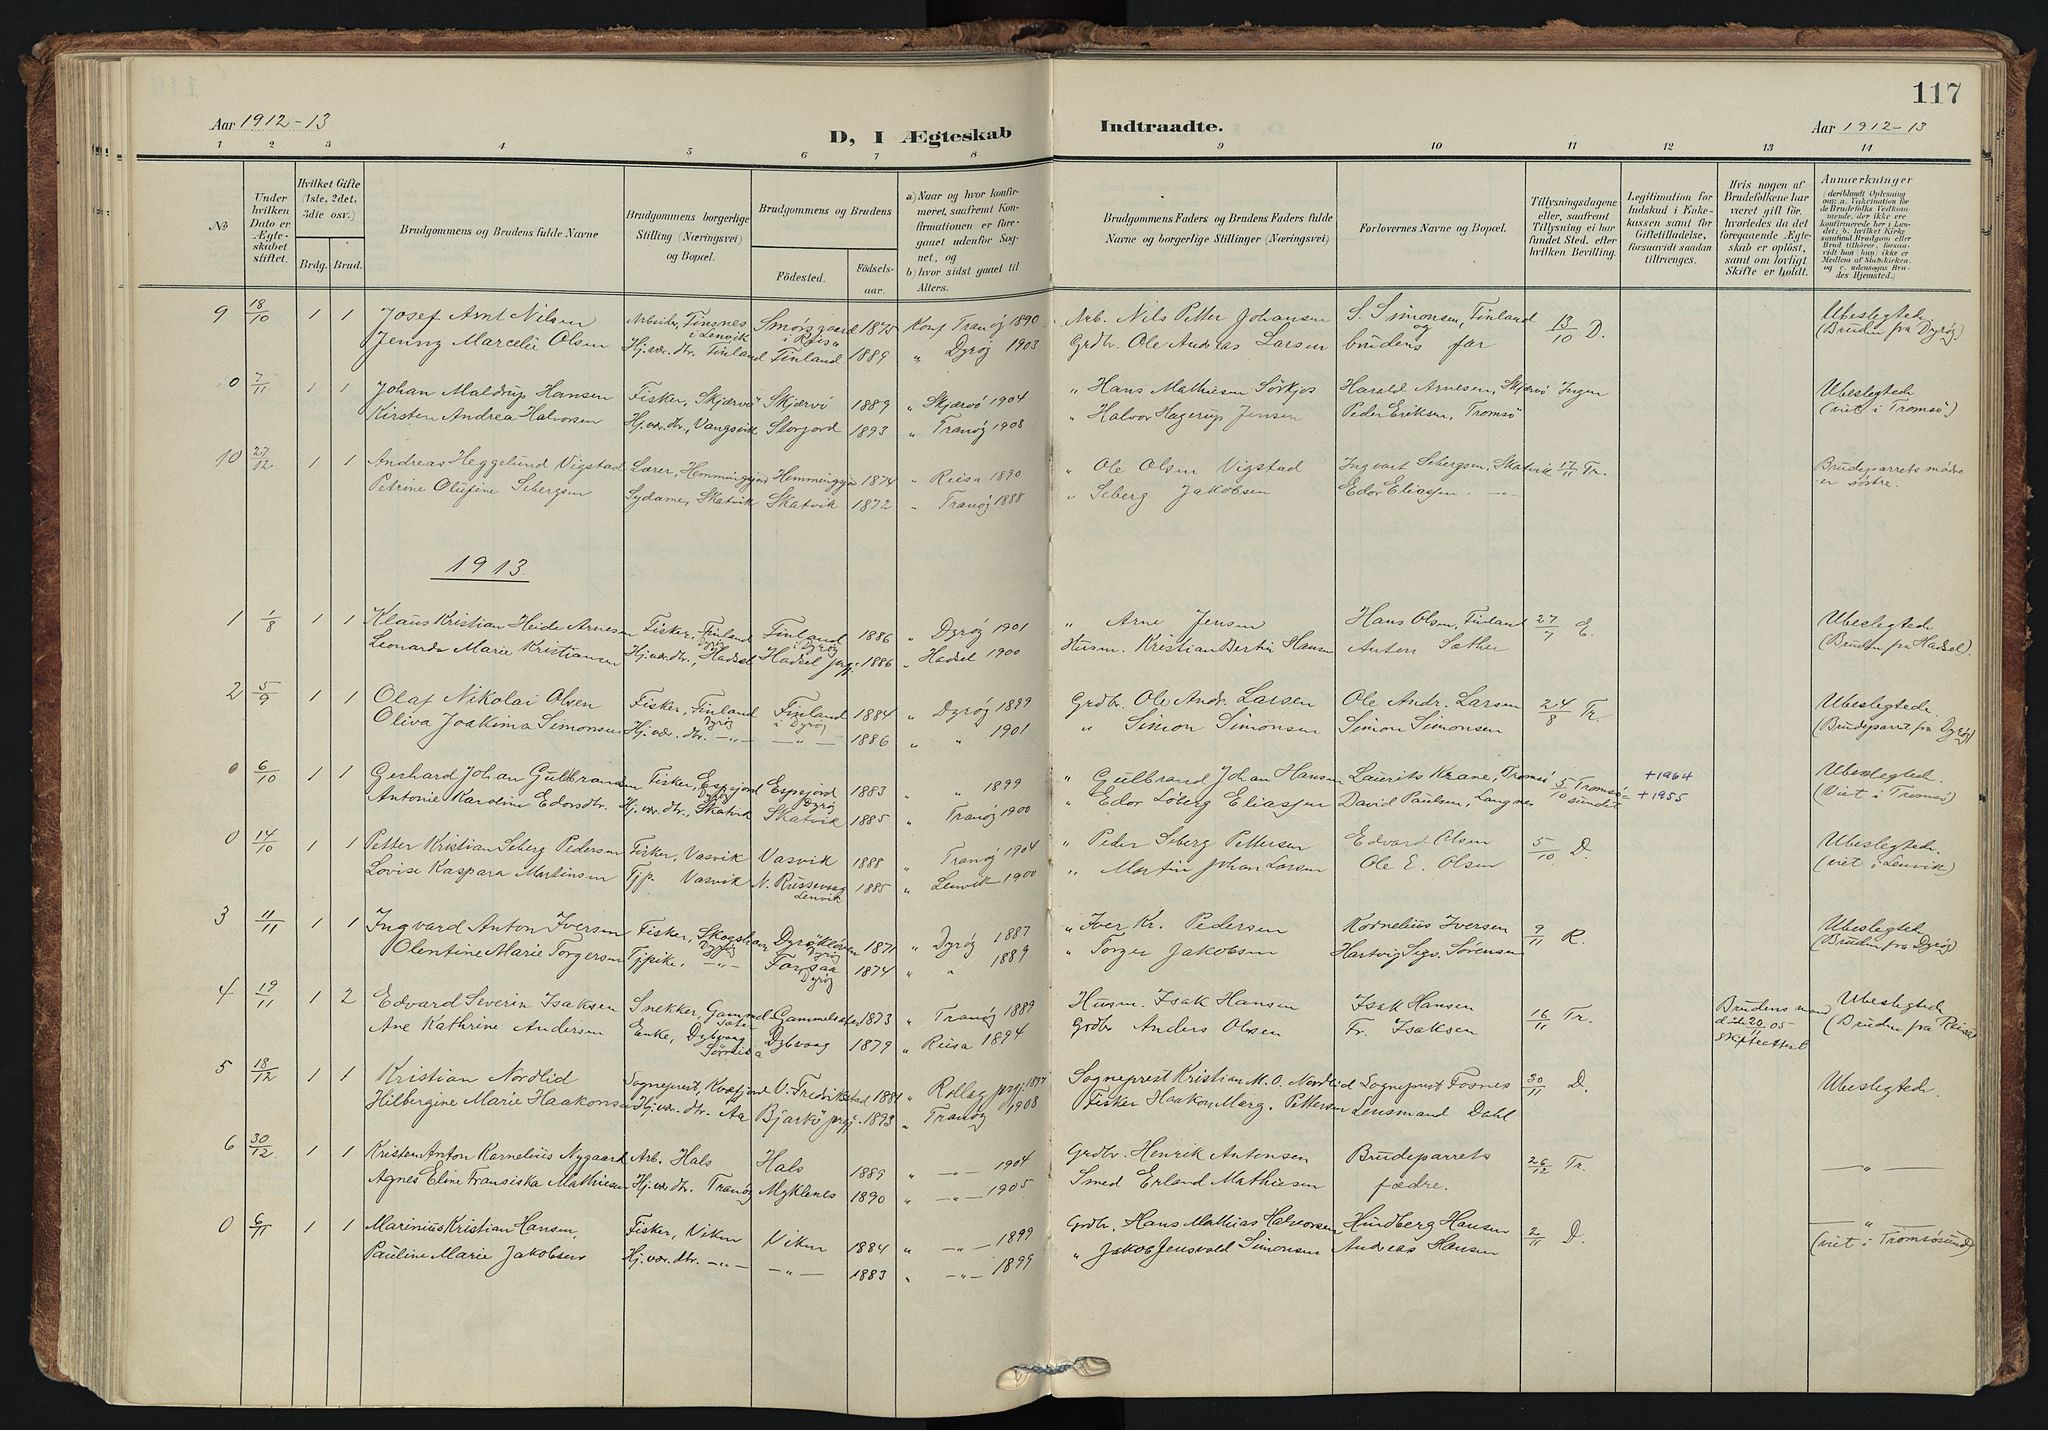 117
Aar 1912-13
D, I Ægteskab Indtraadte.
Aar 1912-13
1 2 3 4 5 6 7 8 9 10 11 12 13 14
No
Under hvilken Dato er Ægteskabet stiftet.
Hvilket Gifte (1ste, 2det, 3die osv.)
Brdg. Brud.
Brudgommens og Brudens fulde Navne
Brudgommens borgerlige Stilling (Næringsvei) og Bopæl.
Brudgommens og Brudens
Födested. Födsels-aar.
a) Naar og hvor konfirmeret, saafremt Konfirmationen er foregaaet udenfor Sognet, og
b) hvor sidst gaaet til Alters.
Brudgommens Faders og Brudens Faders fulde Navne og borgerlige Stillinger (Næringsvei)
Forlovernes Navne og Bopæl.
Tillysningsdagene eller, saafremt Tillysning ei har fundet Sted, efter hvilken Bevilling.
Legitimation for Indskud i Enkekassen samt for Giftetilladelse, forsaavidt saadan tiltrænges.
Hvis nogen af Brudefolkene har været gift för, hvorledes da det foregaaende Ægteskab er oplöst, samt om lovligt Skifte er holdt.
Anmærkninger
(deriblandt Oplysning om: a. Vakcination for de Brudefolks Vedkommende, der ikke ere konfirmerede her i Landet; b. hvilket Kirkesamfund Brudgom eller Brud tilhörer, forsaavidt han (hun) ikke er Medlem af Statskirken, og c. udensogns Brudes Hjemsted.)
9 18/10 1 1 Josef Arnt Nilsen Arbeider, Finsnes i Lenvik Smörsgaard i Reisa 1875 Konf. Tranöj 1890 Arb. Nils Petter Johansen S. Simonsen, Finland og 13/10 D. Ubeslegtede
Jenny Marcelie Olsen Hj.vær. dtr. Finland Finland 1889 " Dyröj 1903 Grdbr. Ole Andreas Larsen brudens far (Bruden fra Dyröj).
0 7/11 1 1 Johan Maldrup Hansen Fisker, Skjærvö Skjærvö 1889 " Skjærvö 1904 " Hans Mathisen Sörkjos Harald Arnesen, Skjærvö Ingen Ubeslegtede
Kirsten Andrea Halvorsen Hj.vær. dtr., Vangsvik Storfjord 1893 " Tranöj 1908 " Halvor Hagerup Jensen Peder Eriksen, Tromsö (viet i Tromsö)
10 27/12 1 1 Andreas Heggelund Vigstad Lærer, Hemmingsjord Hemmingsjord 1874 " Reisa 1890 " Ole Olsen Vigstad Ingvart Sebergsen, Skatvik 17/11 Tr. Brudeparrets mödre
Petrine Olufine Sebergsen Sydame, Skatvik Skatvik 1872 " Tranöj 1888 " Seberg Jakobsen Edor Eliassen -"- er söstre.
1913.
1 1/8 1 1 Klaus Kristian Heide Arnesen Fisker, Finland Dyröj Finland i Dyröj 1886 " Dyröj 1901 " Arne Jensen Hans Olsen, Finland 27/7 E. Ubeslegtede
Leonarda Marie Kristiansen Hj.vær. dtr., Hadsel Hadsel prgj. 1886 " Hadsel 1900 Husm. Kristian Bertin Hansen Anton Sæther (Bruden fra Hadsel).
2 5/9 1 1 Olaf Nikolai Olsen Fisker, Finland Dyröj Finland i Dyröj 1884 " Dyröj 1899 Grdbr. Ole Andr. Larsen Ole Andr. Larsen 24/8 Tr. Ubeslegtede
Oliva Joakima Simonsen Hj.vær. dtr. -"- -"- 1886 " " 1901 " Simon Simonsen Simon Simonsen (Brudeparret fra Dyröj)
0 6/10 1 1 Gerhard Johan Gulbrandsen Fisker, Espejord Dyröj Espejord Dyröj 1883 " " 1899 " Gulbrand Johan Hansen Laurits Krane, Tromsö 5/10 Tromsösundet +1964 Ubeslegtede.
Antonie Karoline Edorsdtr. Hj.vær. dtr., Skatvik Skatvik 1885 " Tranöj 1900 " Edor Söberg Eliassen David Paulsen, Langnes +1955 (Viet i Tromsö)
0 14/10 1 1 Petter Kristian Seberg Pedersen Fisker, Vasvik Vasvik 1888 " Tranöj 1904 " Peder Seberg Pettersen Edvard Olsen 5/10 D. Ubeslegtede.
Lovise Kaspara Martinsen Tjp. Vasvik N. Russevaag Lenvik 1885 " Lenvik 1900 " Martin Johan Larsen Ole E. Olsen (viet i Lenvik)
3 11/11 1 1 Ingvard Anton Iversen Fisker, Skogshavn Dyröj Dyröklöven Dyröj 1871 " Dyröj 1887 " Iver Kr. Pedersen Kornelius Iversen 9/11 R. Ubeslegtede
Olentine Marie Torgersen Tjpike, -"- Forsaa Dyröj 1874 " " 1889 " Torger Jakobsen Hartvig Sigv. Sörensen (Bruden fra Dyröj)
4 19/11 1 2 Edvard Severin Isaksen Snekker, Gammelsæter Gammelsæter 1873 " Tranöj 1889 Husm. Isak Hansen Isak Hansen 16/11 Tr. Brudens mand döde 20/11 05 Ubeslegtede
Ane Kathrine Andersen Enke, Dybvaag Sörreisa Dybvaag 1879 " Reisa 1894 Grdbr Anders Olsen Fr. Isaksen (Bruden fra Reisa)
5 18/12 1 1 Kristian Nordlid Sogneprest, Kvæfjord V. Fredrikstad 1881 " Rollag prgj. 1897 Sogneprest Kristian M. O. Nordlid Sogneprest Fosnes 30/11 D. Ubeslegtede.
Hilbergine Marie Haakonsen Hj.vær. dtr. Aa Bjarkö prgj. 1893 " Tranöj 1908 Fisker Haakon Marg. Pettersen Lensmand Dahl
6 30/12 1 1 Kristen Anton Kornelius Nygaard Arb. Hals Hals 1889 " -"- 1904 Grdbr. Henrik Antonsen Brudeparrets 26/12 Tr. -"-
Agnes Eline Fransiska Mathisen Hj.vær. dtr. Tranöj Myklenes 1890 " -"- 1905 Smed Erland Mathiesen fædre.
0 6/11 1 1 Marinius Kristian Hansen, Fisker, Viken Viken 1884 " -"- 1899 Grdbr. Hans Mathias Halvorsen Hindberg Hansen 2/11 D. -"-
Pauline Marie Jakobsen Hj.vær. dtr. -"- -"- 1883 " -"- 1899 " Jakob Jensvold Simonsen Andreas Hansen (viet i Tromsösund)